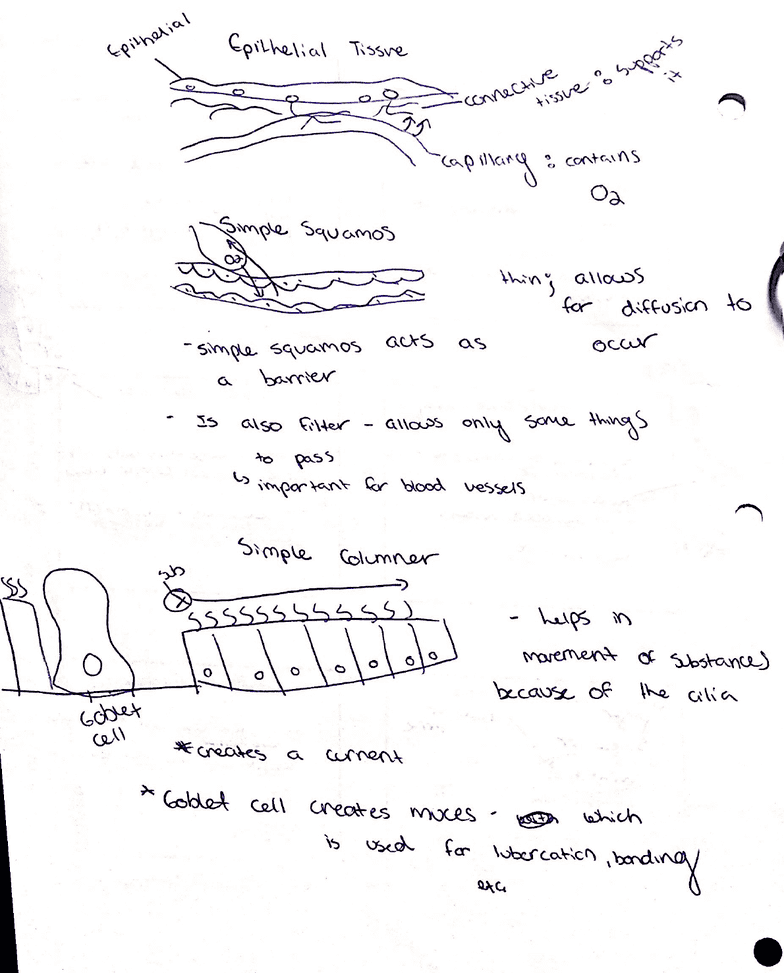 Epithelial
Epithelial Tissue
connective
tissue : supports
it
capillary : contains
O2
Simple Squamos
O2
thin; allows
for diffusion to
occur
- simple squamos acts as
a barrier
- Is also filter - allows only some things
to pass
↳ important for blood vessels
Simple Columner
sb
- helps in
movement of substances
because of the cilia
Goblet
cell
* creates a current
* Goblet cell creates muces - which
is used for lubercation, bonding
etc